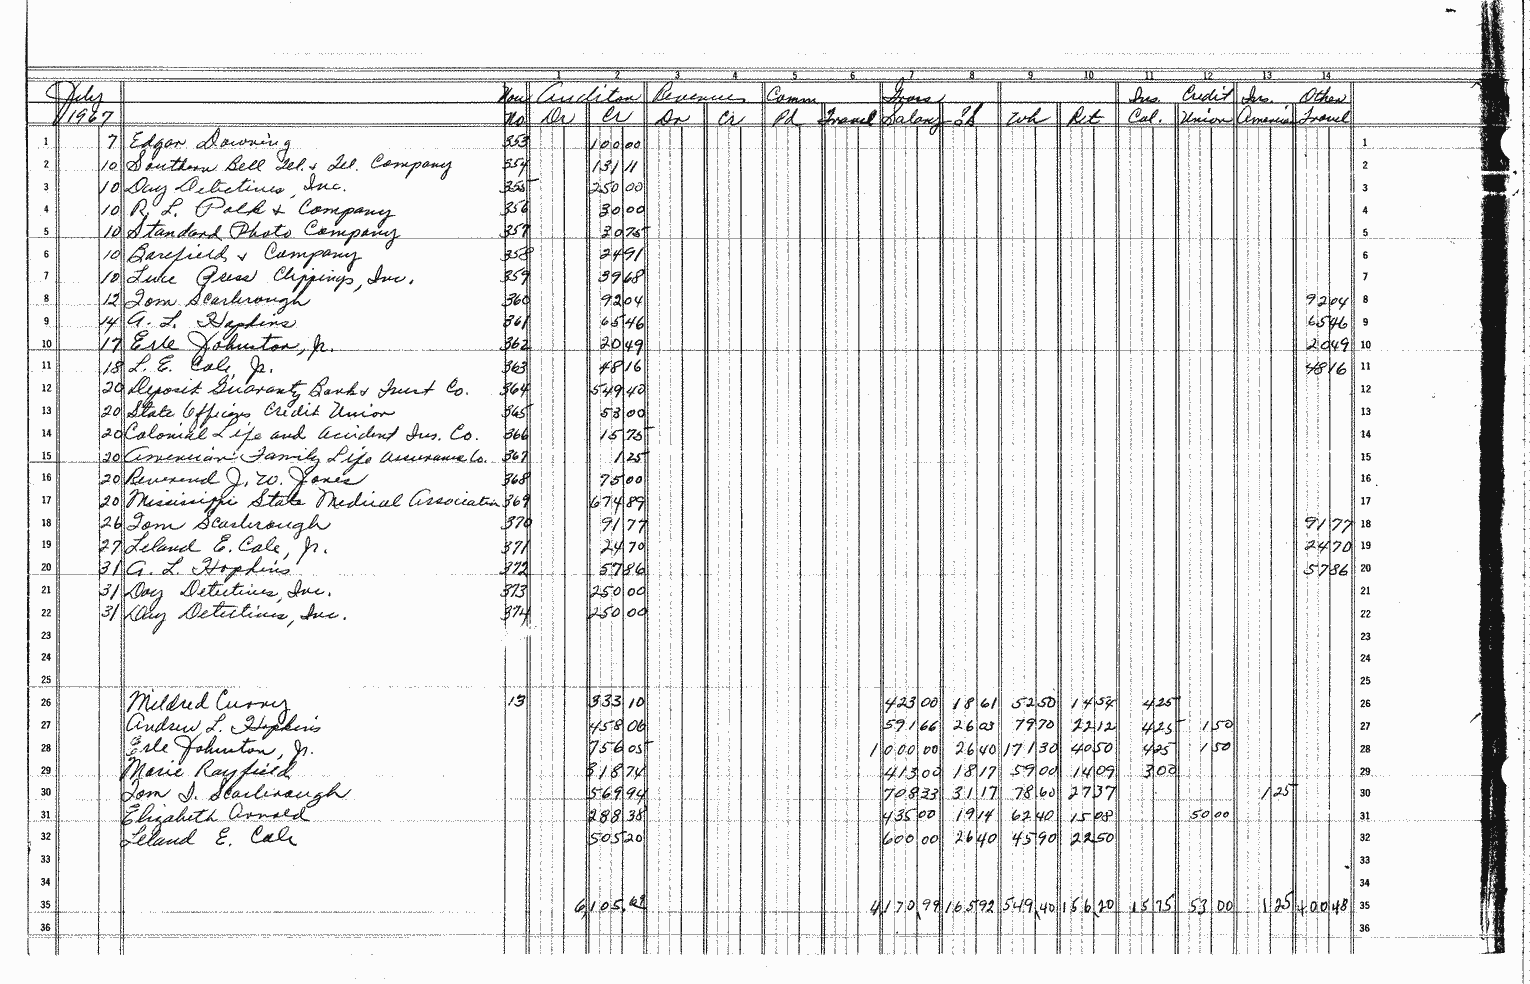 1 2 3 4 5 6 7 8 9 10 11 12 13 14
July Vou Auditor Revenues Comm Gross Ins. Credit Ins. Other
1967 No Dr Cr Dr Cr Pd Travel Salary Wh Ret Cal. Union America Travel
1 7 Edgar Downing 353 100 00 1
2 10 Southern Bell Tel. & Tel. Company 354 131 11 2
3 10 Day Detectives, Inc. 355 250 00 3
4 10 R. L. Polk & Company 356 30 00 4
5 10 Standard Photo Company 357 30 75 5
6 10 Barefield & Company 358 24 91 6
7 10 Luce Press Clippings, Inc. 359 39 68 7
8 12 Tom Scarbrough 360 92 04 92 04 8
9 14 A. L. Hopkins 361 65 46 65 46 9
10 17 Erle Johnston, Jr. 362 20 49 20 49 10
11 18 L. E. Cole, Jr. 363 48 16 48 16 11
12 20 Deposit Guaranty Bank & Trust Co. 364 549 40 12
13 20 State Officers Credit Union 365 53 00 13
14 20 Colonial Life and Accident Ins. Co. 366 15 75 14
15 20 American Family Life Assurance Co. 367 1 25 15
16 20 Reverend J. W. Jones 368 75 00 16
17 20 Mississippi State Medical Association 369 674 89 17
18 26 Tom Scarbrough 370 91 77 91 77 18
19 27 Leland E. Cole, Jr. 371 24 70 24 70 19
20 31 A. L. Hopkins 372 57 86 57 86 20
21 31 Day Detectives, Inc. 373 250 00 21
22 31 Day Detectives, Inc. 374 250 00 22
23 23
24 24
25 25
26 Mildred Curry 13 333 10 423 00 18 61 52 50 14 54 4 25 26
27 Andrew L. Hopkins 458 06 591 66 26 03 79 70 22 12 4 25 1 50 27
28 Erle Johnston, Jr. 756 05 1000 00 26 40 171 30 40 50 4 25 1 50 28
29 Marie Rayfield 318 74 413 00 18 17 59 00 14 09 3 00 29
30 Tom S. Scarbrough 569 94 708 33 31 17 78 60 27 37 1 25 30
31 Elizabeth Arnold 288 38 435 00 19 14 62 40 15 08 50 00 31
32 Leland E. Cole 505 20 600 00 26 40 45 90 22 50 32
33 33
34 34
35 6,105.69 4170.99 165 92 549.40 156.20 15 75 53 00 1 25 400 48 35
36 36